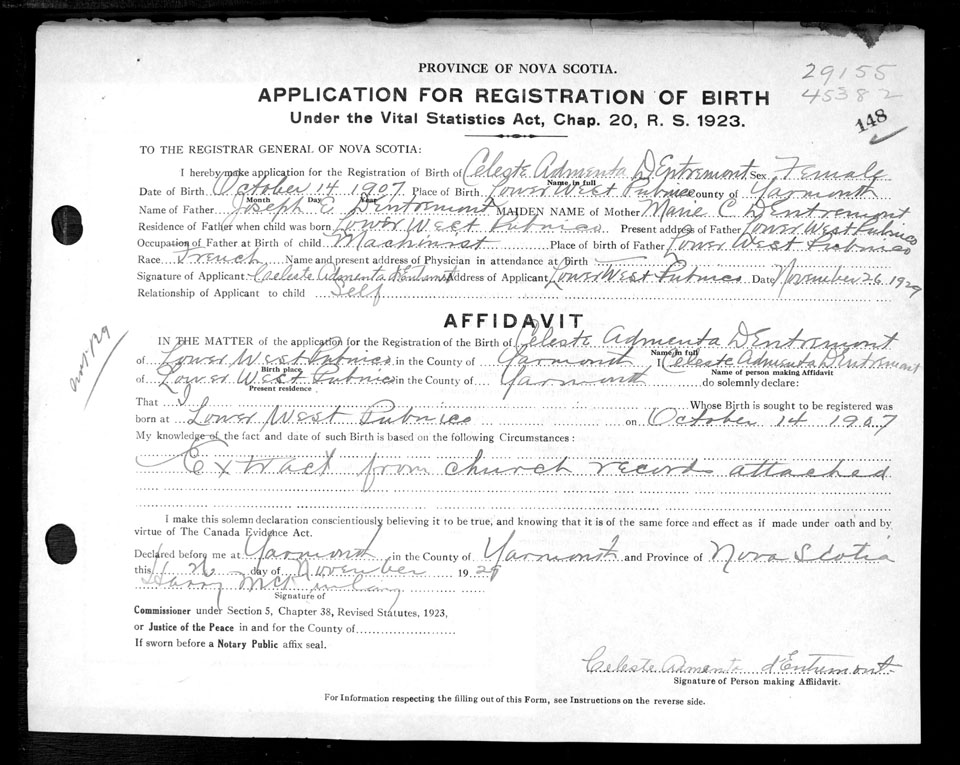 PROVINCE OF NOVA SCOTIA.
29155
45382
148
APPLICATION FOR REGISTRATION OF BIRTH
Under the Vital Statistics Act, Chap. 20, R. S. 1923.
TO THE REGISTRAR GENERAL OF NOVA SCOTIA:
I hereby make application for the Registration of Birth of Celeste Admenta D'Entremont Sex Female
Name in full
Date of Birth October 14 1907 Place of Birth Lower West Pubnico County of Yarmouth
Month Day Year
Name of Father Joseph E. D'Entremont MAIDEN NAME of Mother Marie C. D'Entremont
Residence of Father when child was born Lower West Pubnico Present address of Father Lower West Pubnico
Occupation of Father at Birth of child Machinist Place of birth of Father Lower West Pubnico
Race French Name and present address of Physician in attendance at birth
Signature of Applicant Celeste Admenta d'Entremont Address of Applicant Lower West Pubnico Date November 26 1929
Relationship of Applicant to child Self
AFFIDAVIT
IN THE MATTER of the application for the Registration of the Birth of Celeste Admenta D'Entremont
Name in full
of Lower West Pubnico in the County of Yarmouth I Celeste Admenta D'Entremont
Birth place Name of person making Affidavit
of Lower West Pubnico in the County of Yarmouth do solemnly declare:
Present residence
That I Whose Birth is sought to be registered was
born at Lower West Pubnico on October 14 1907
My knowledge of the fact and date of such Birth is based on the following Circumstances:
Extract from church records attached
I make this solemn declaration conscientiously believing it to be true, and knowing that it is of the same force and effect as if made under oath and by
virtue of The Canada Evidence Act.
Declared before me at Yarmouth in the County of Yarmouth and Province of Nova Scotia
this day of November 1929
Harry
Signature of
Commissioner under Section 5, Chapter 38, Revised Statutes, 1923,
or Justice of the Peace in and for the County of
If sworn before a Notary Public affix seal.
Celeste Admenta d'Entremont
Signature of Person making Affidavit.
For Information respecting the filling out of this Form, see Instructions on the reverse side.